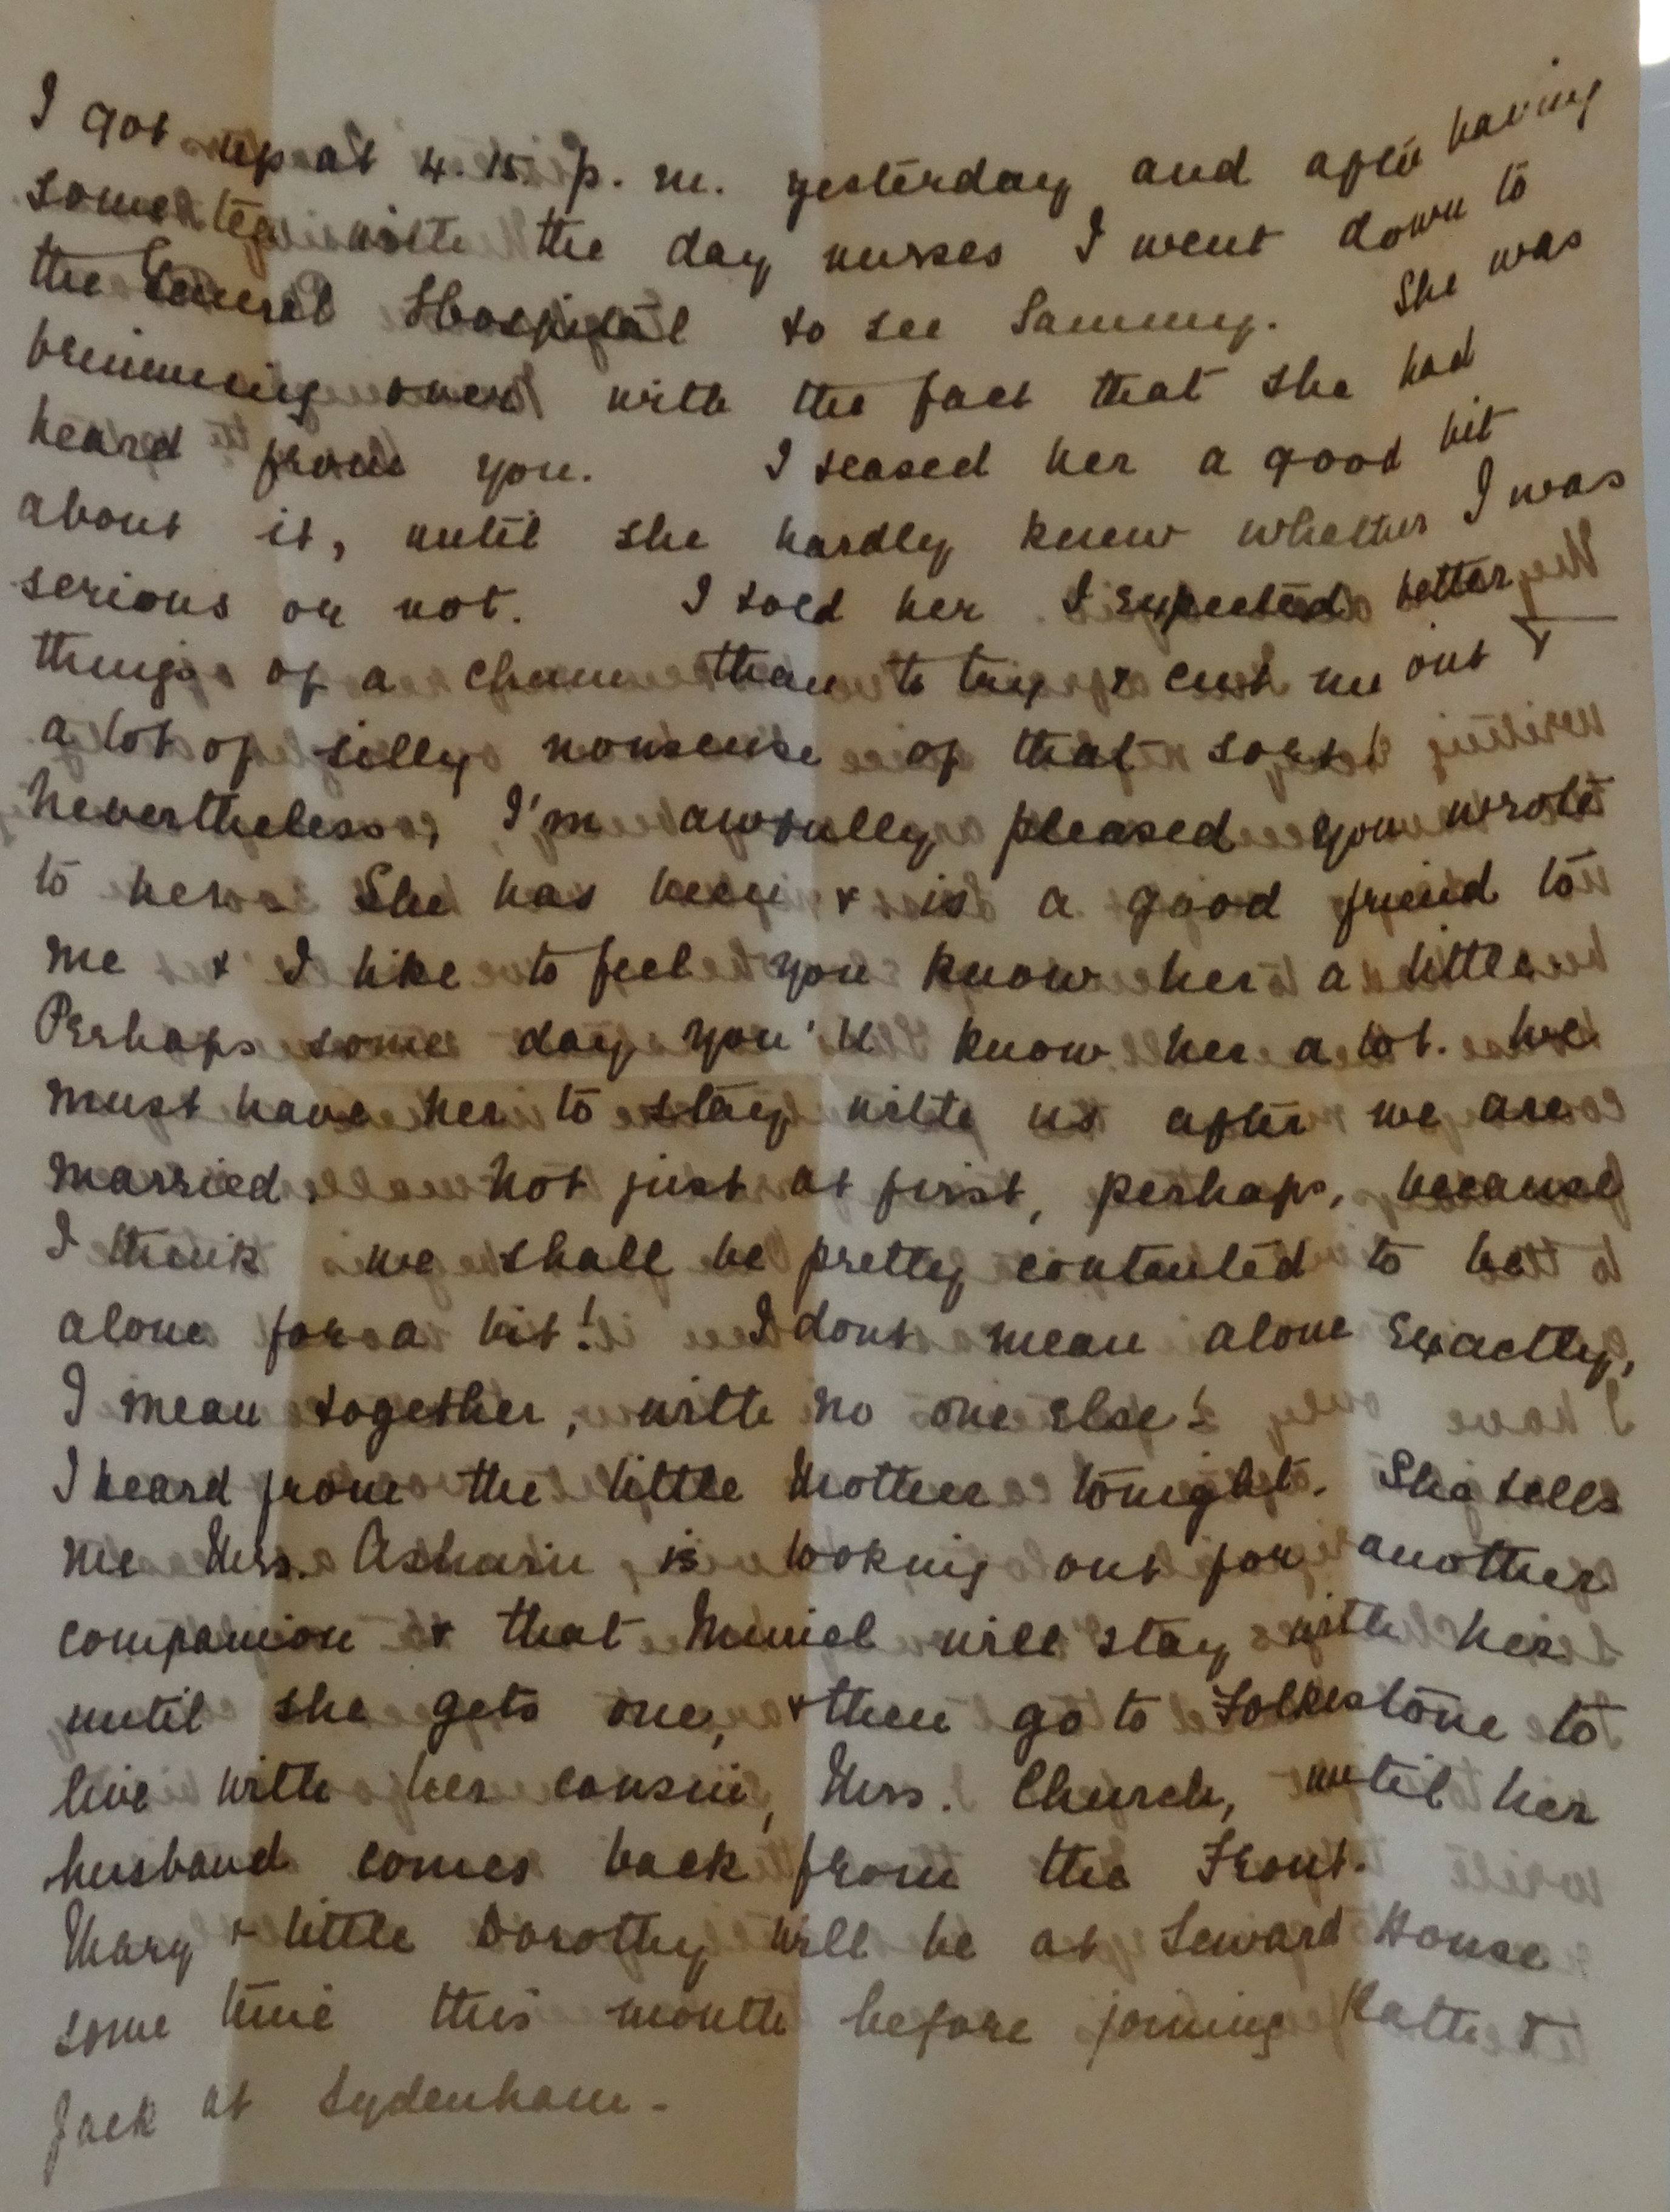 I got up at 4.15. p.m. yesterday and after having
some tea with the day nurses I went down to
the General Hospital to see Sammy. She was
brimming over with the fact that she had
heard from you. I teased her a good bit
about it, until she hardly knew whether I was
serious or not. I told her I expected better
things of a chum than to try & cut me out &
a lot of silly nonsense of that sort!
Nevertheless, I'm awfully pleased you wrote
to her. She has been & is a good friend to
me & I like to feel you know her a little
Perhaps some day you'll know her a lot. We
must have her to stay with us after we are
married. Not just at first, perhaps, because
I think we shall be pretty contented to be
alone for a bit! I dont mean alone exactly,
I mean together, with no one else!
I heard from the little Mother tonight. She tells
me Mrs. is looking out for another
companion & that Muriel will stay with her
until she gets one, & then go to Folkestone to
live with her cousin, Mrs. Church, until her
husband comes back from the Front.
Mary & little Dorothy will be at Seward House
some time this month before joining &
Jack at Sydenham.